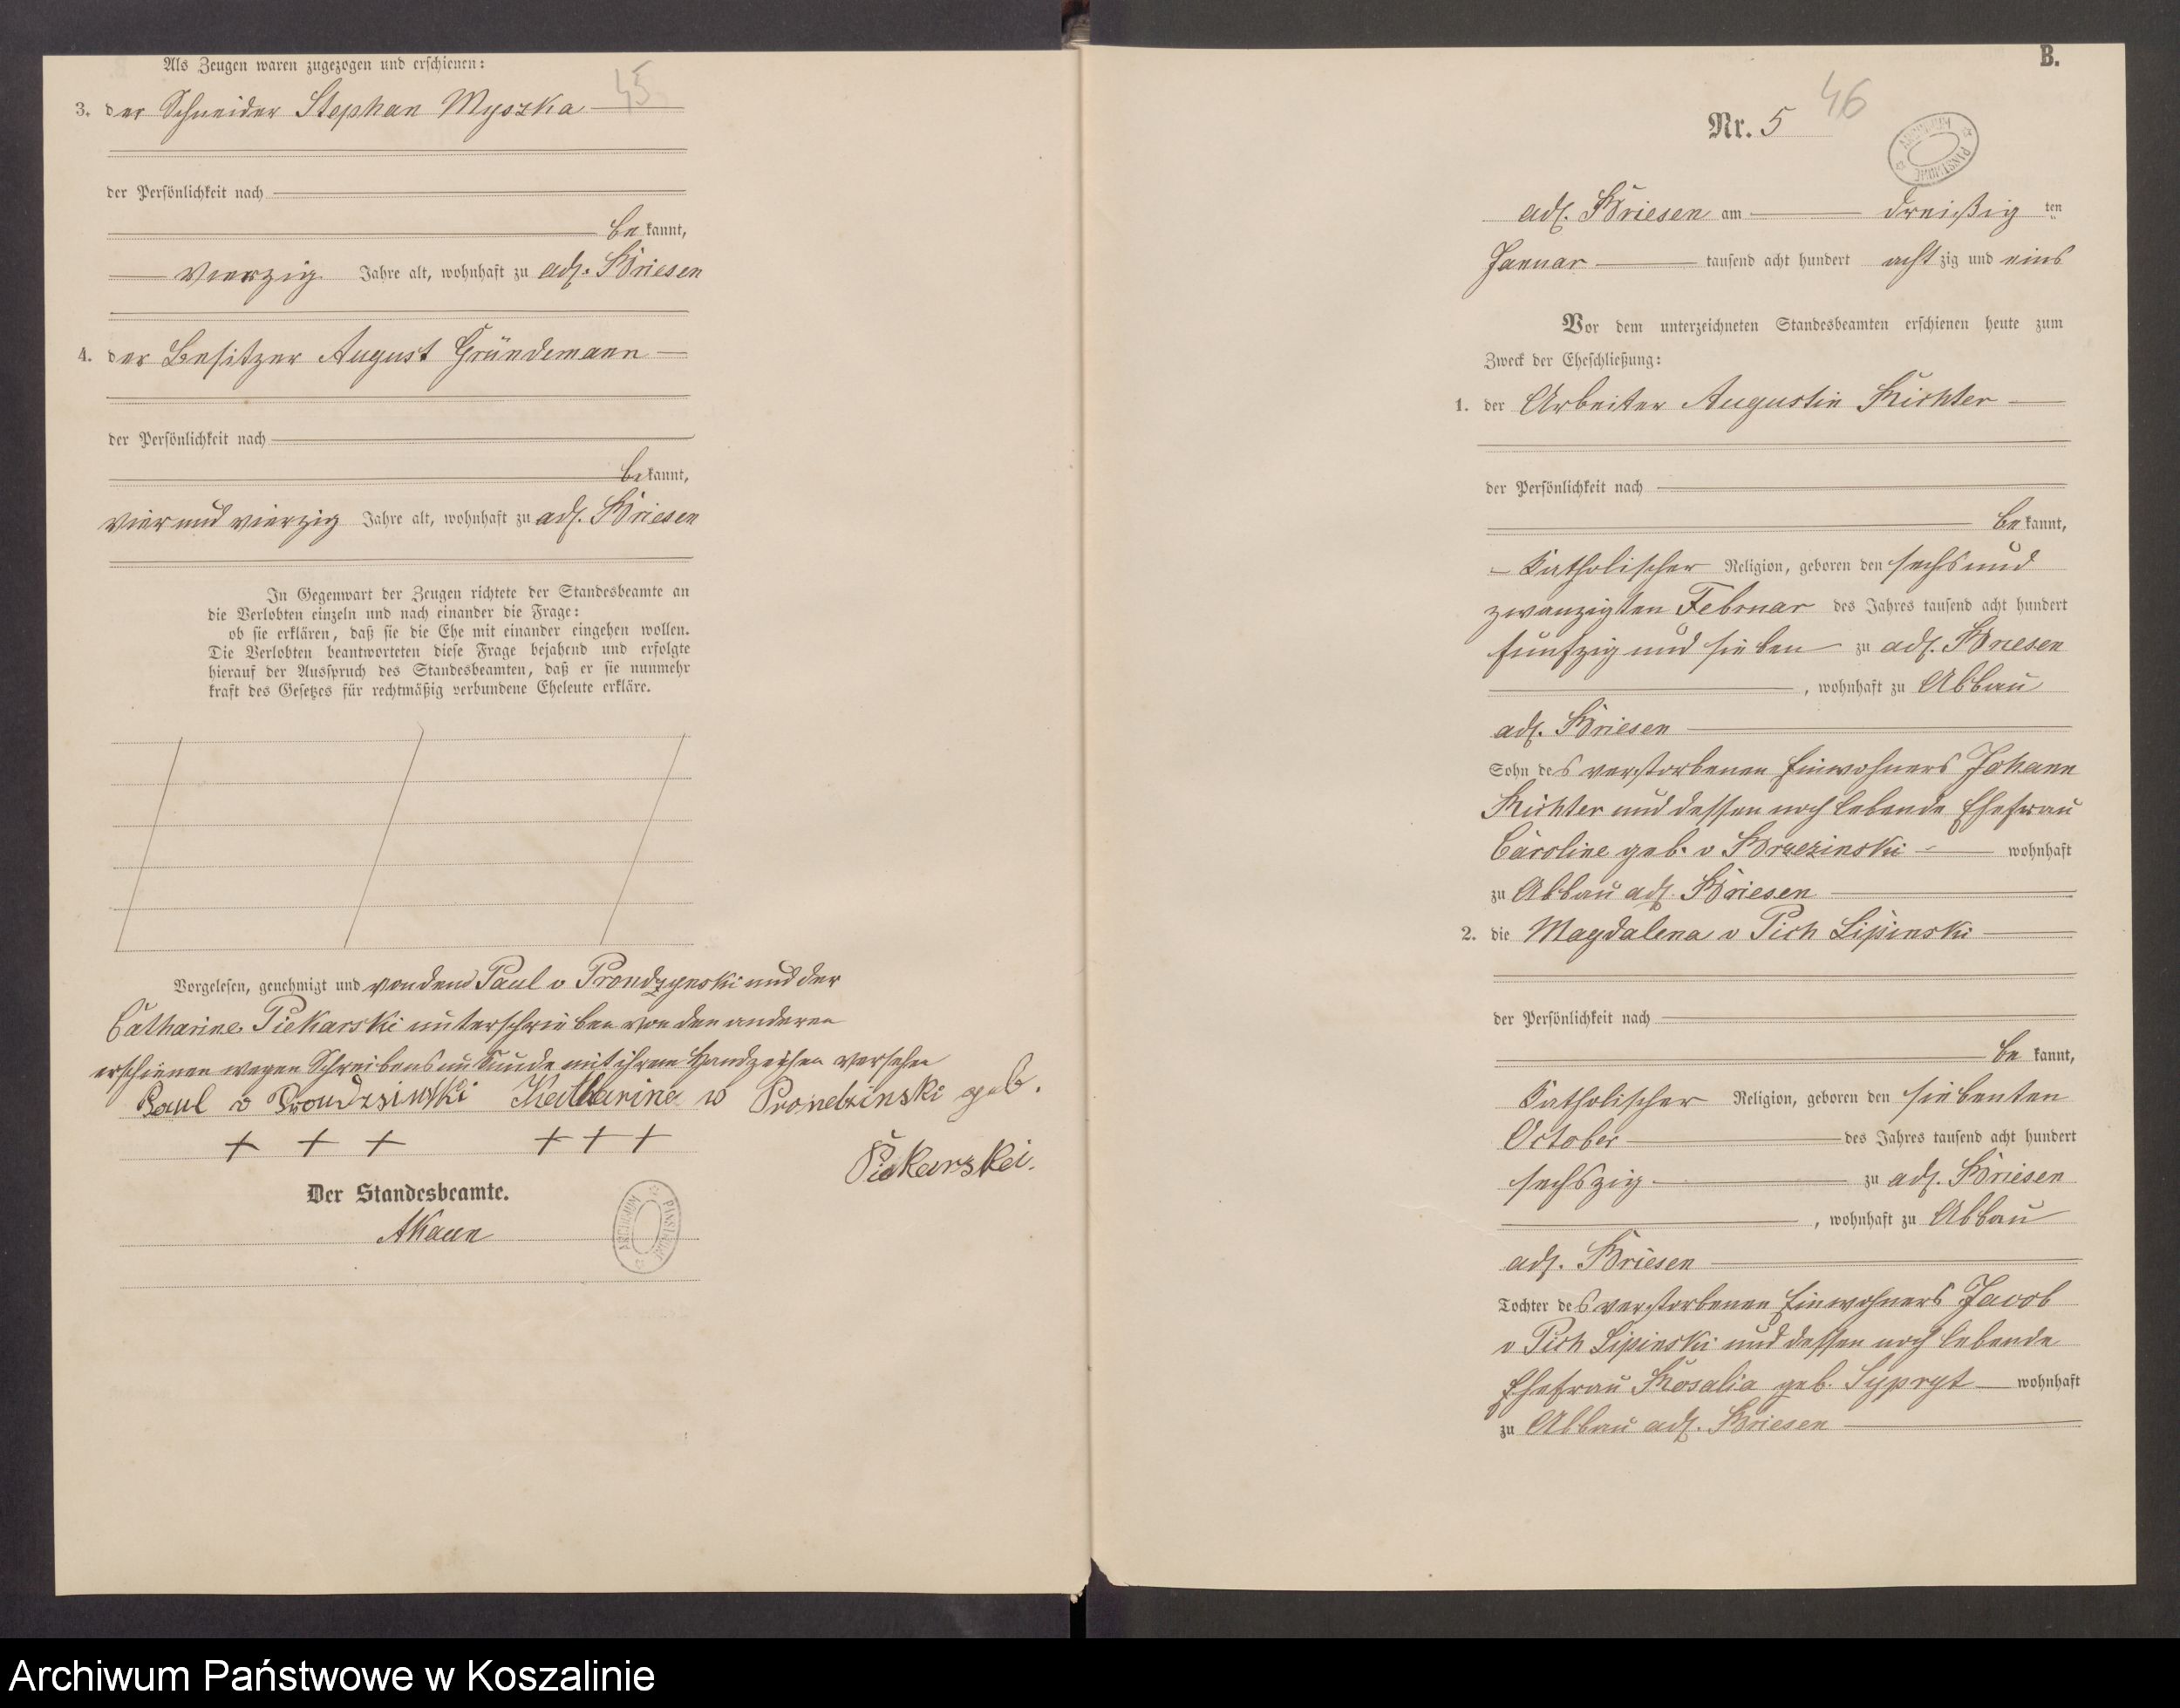 Als Zeugen waren zugezogen und erschienen:
45
3. der Schneider Stephan Myszka
der Persönlichkeit nach
bekannt,
vierzig Jahre alt, wohnhaft zu adl. Briesen
4. der Besitzer August Gründemann
der Persönlichkeit nach
bekannt,
vier und vierzig Jahre alt, wohnhaft zu adl. Briesen
In Gegenwart der Zeugen richtete der Standesbeamte an
die Verlobten einzeln und nach einander die Frage:
ob sie erklären, daß sie die Ehe mit einander eingehen wollen.
Die Verlobten beantworteten diese Frage bejahend und erfolgte
hierauf der Ausspruch des Standesbeamten, daß er sie nunmehr
kraft des Gesetzes für rechtmäßig verbundene Eheleute erkläre.
Vorgelesen, genehmigt und von dem Paul v Prondzynski und der
Catharine Piekarski unterschrieben von den anderen
erschienen wegen Schreibensunkunde mit ihrem Handzeichen versehen
Paul v Prondzinski Katharina v Prondzinski geb.
+ + + + + +
Piekarski.
Der Standesbeamte.
ARCHIWUM PAŃSTWOWE
B.
46
Nr. 5
ARCHIWUM PAŃSTWOWE
adl. Briesen am dreißig ten
Januar tausend acht hundert achtzig und eins
Vor dem unterzeichneten Standesbeamten erschienen heute zum
Zweck der Eheschließung:
1. der Arbeiter Augustin Richter
der Persönlichkeit nach
bekannt,
Katholischer Religion, geboren den sechs und
zwanzigsten Februar des Jahres tausend acht hundert
fünfzig und sieben zu adl. Briesen
, wohnhaft zu Abbau
adl. Briesen
Sohn des verstorbenen Einwohners Johann
Richter und dessen noch lebende Ehefrau
Caroline geb. v Brzezinski wohnhaft
zu Abbau adl. Briesen
2. die Magdalena v Pich Lipinski
der Persönlichkeit nach
bekannt,
Katholischer Religion, geboren den siebenten
October des Jahres tausend acht hundert
sechszig zu adl. Briesen
, wohnhaft zu Abbau
adl. Briesen
Tochter des verstorbenen Einwohners Jacob
v Pich Lipinski und dessen noch lebende
Ehefrau Rosalia geb. Sypryt wohnhaft
zu Abbau adl. Briesen
Archiwum Państwowe w Koszalinie